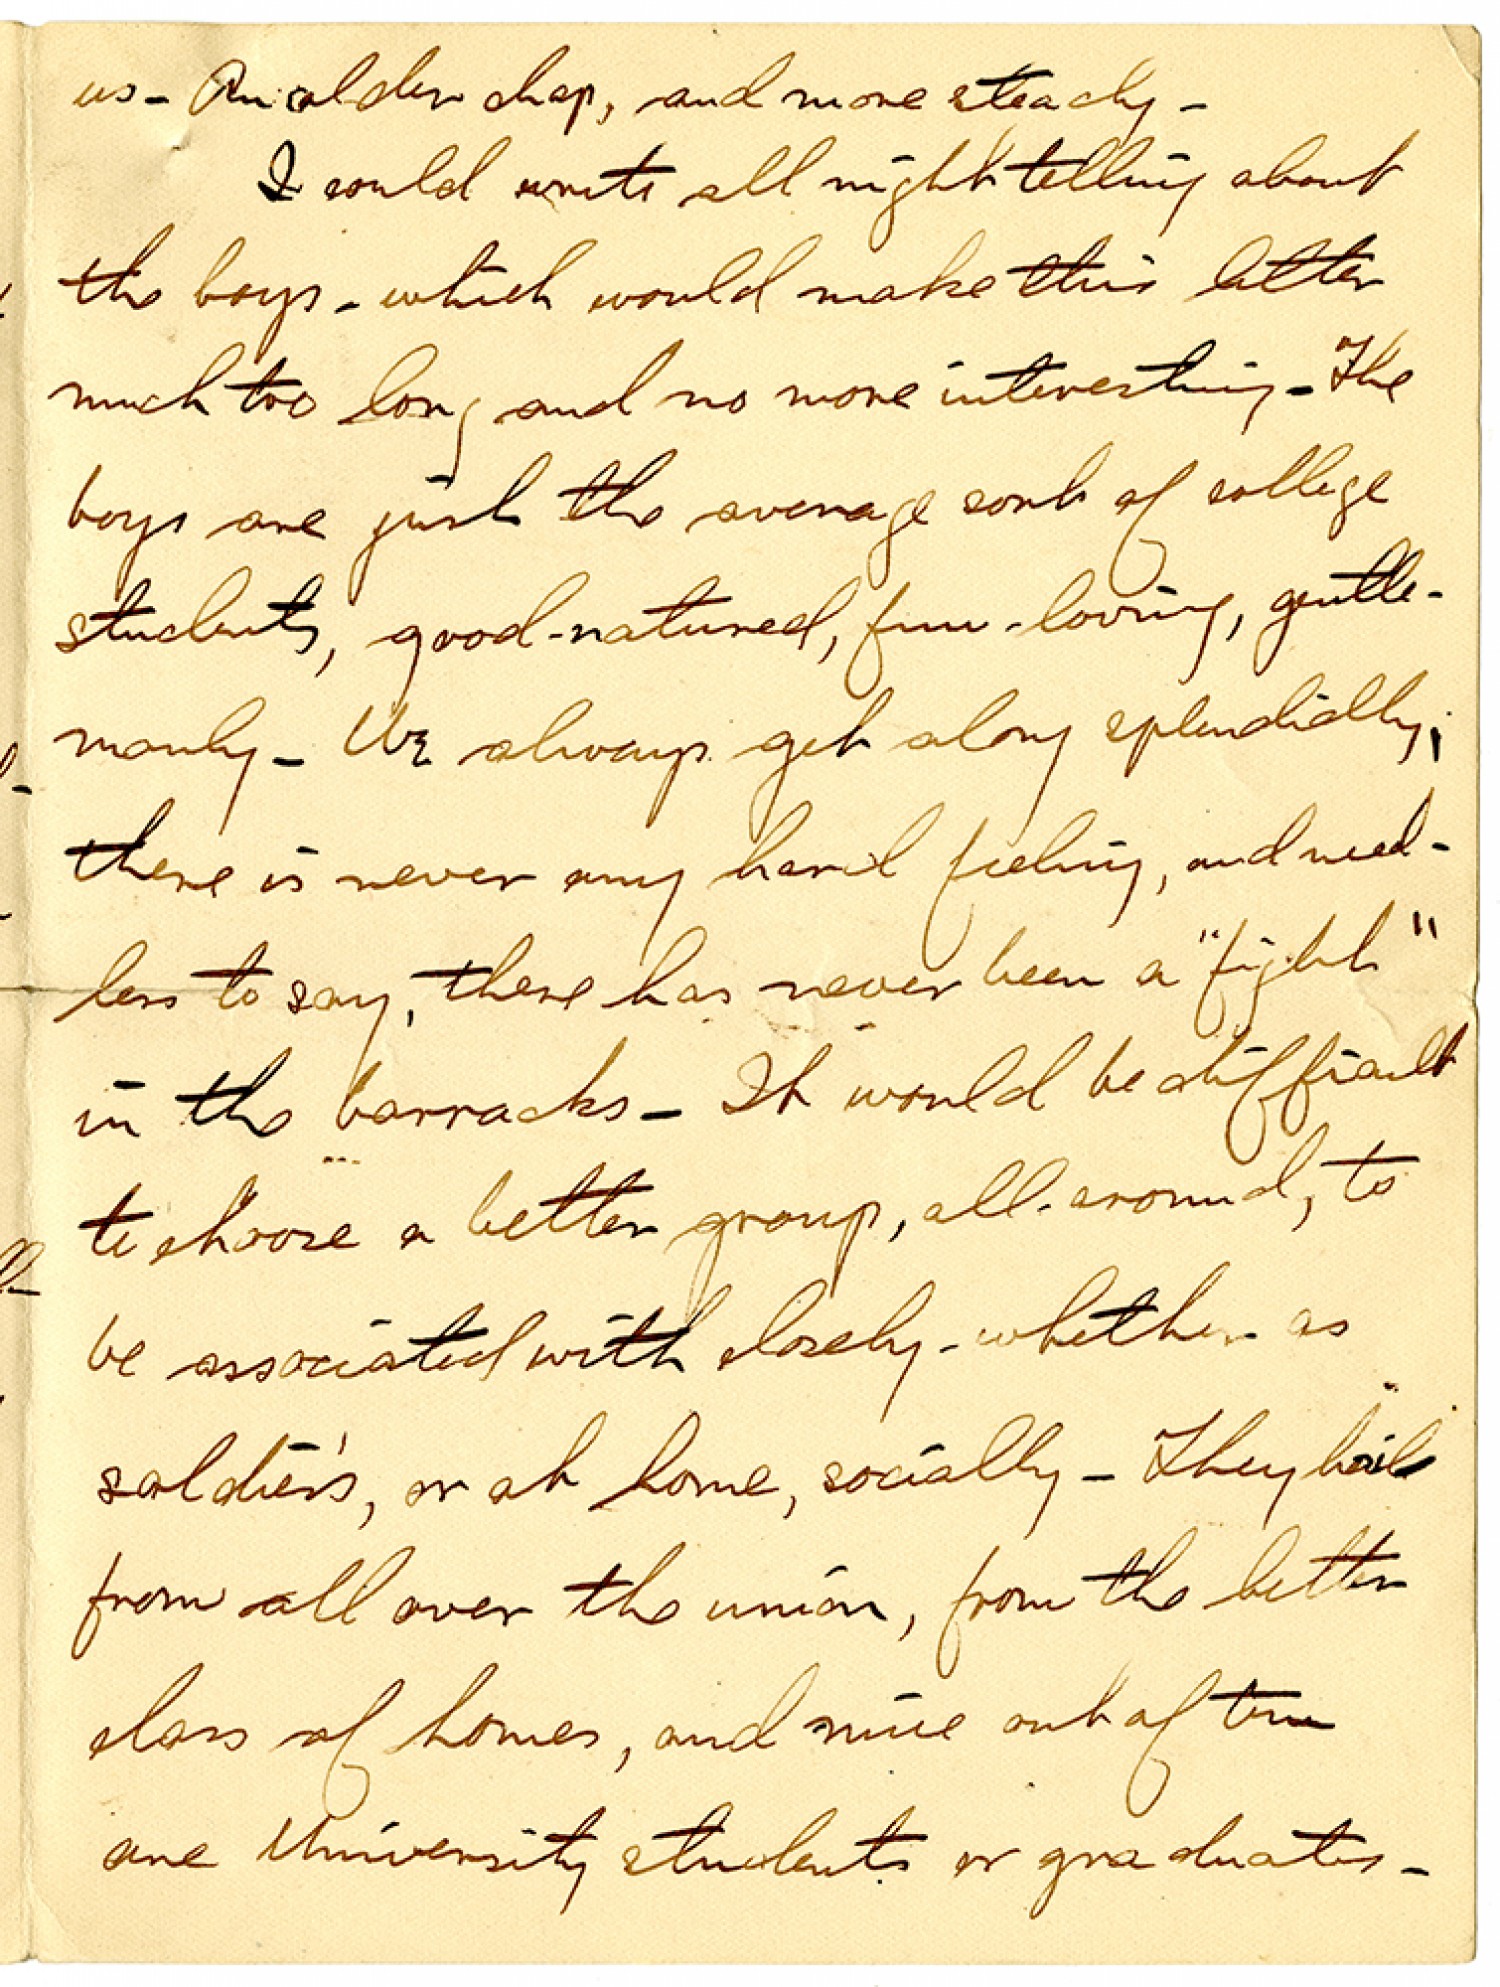 us - An older chap, and more steady -
I could write all night telling about
the boys - which would make this letter
much too long and no more interesting - The
boys are just the average sort of college
students, good-natured, fun-loving, gentle-
manly - We always get along splendidly;
there is never any hard feeling, and need-
less to say, there has never been a "fight"
in the barracks - It would be difficult
to choose a better group, all-around, to
be associated with closely - whether as
soldiers, or at home, socially - They hail
from all over the union, from the better
class of homes, and nine out of ten
are University students or graduates -